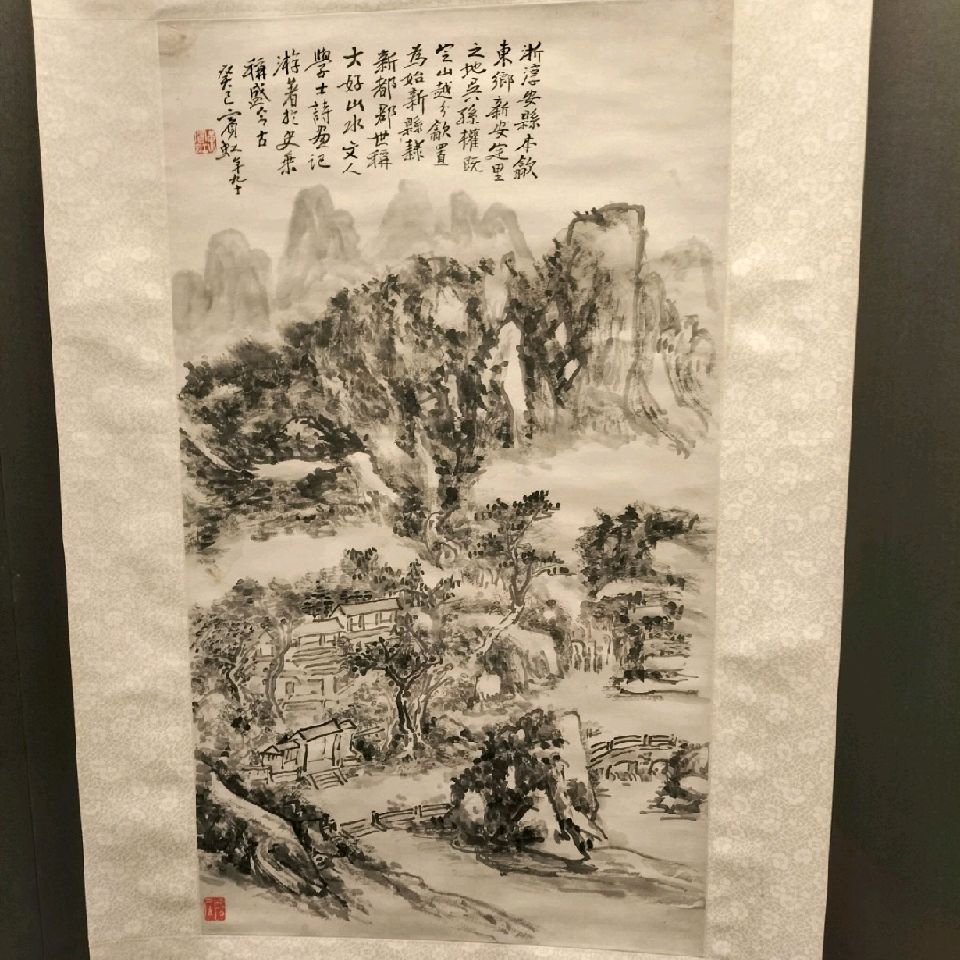 浙淳安縣本歙
東鄉新安定里
之地吳孫權既
定山越分歙置
為始新縣隸
新都郡世稱
大好山水文人
學士詩畫記
游著於史乘
稱盛今古
癸巳賓虹年九十